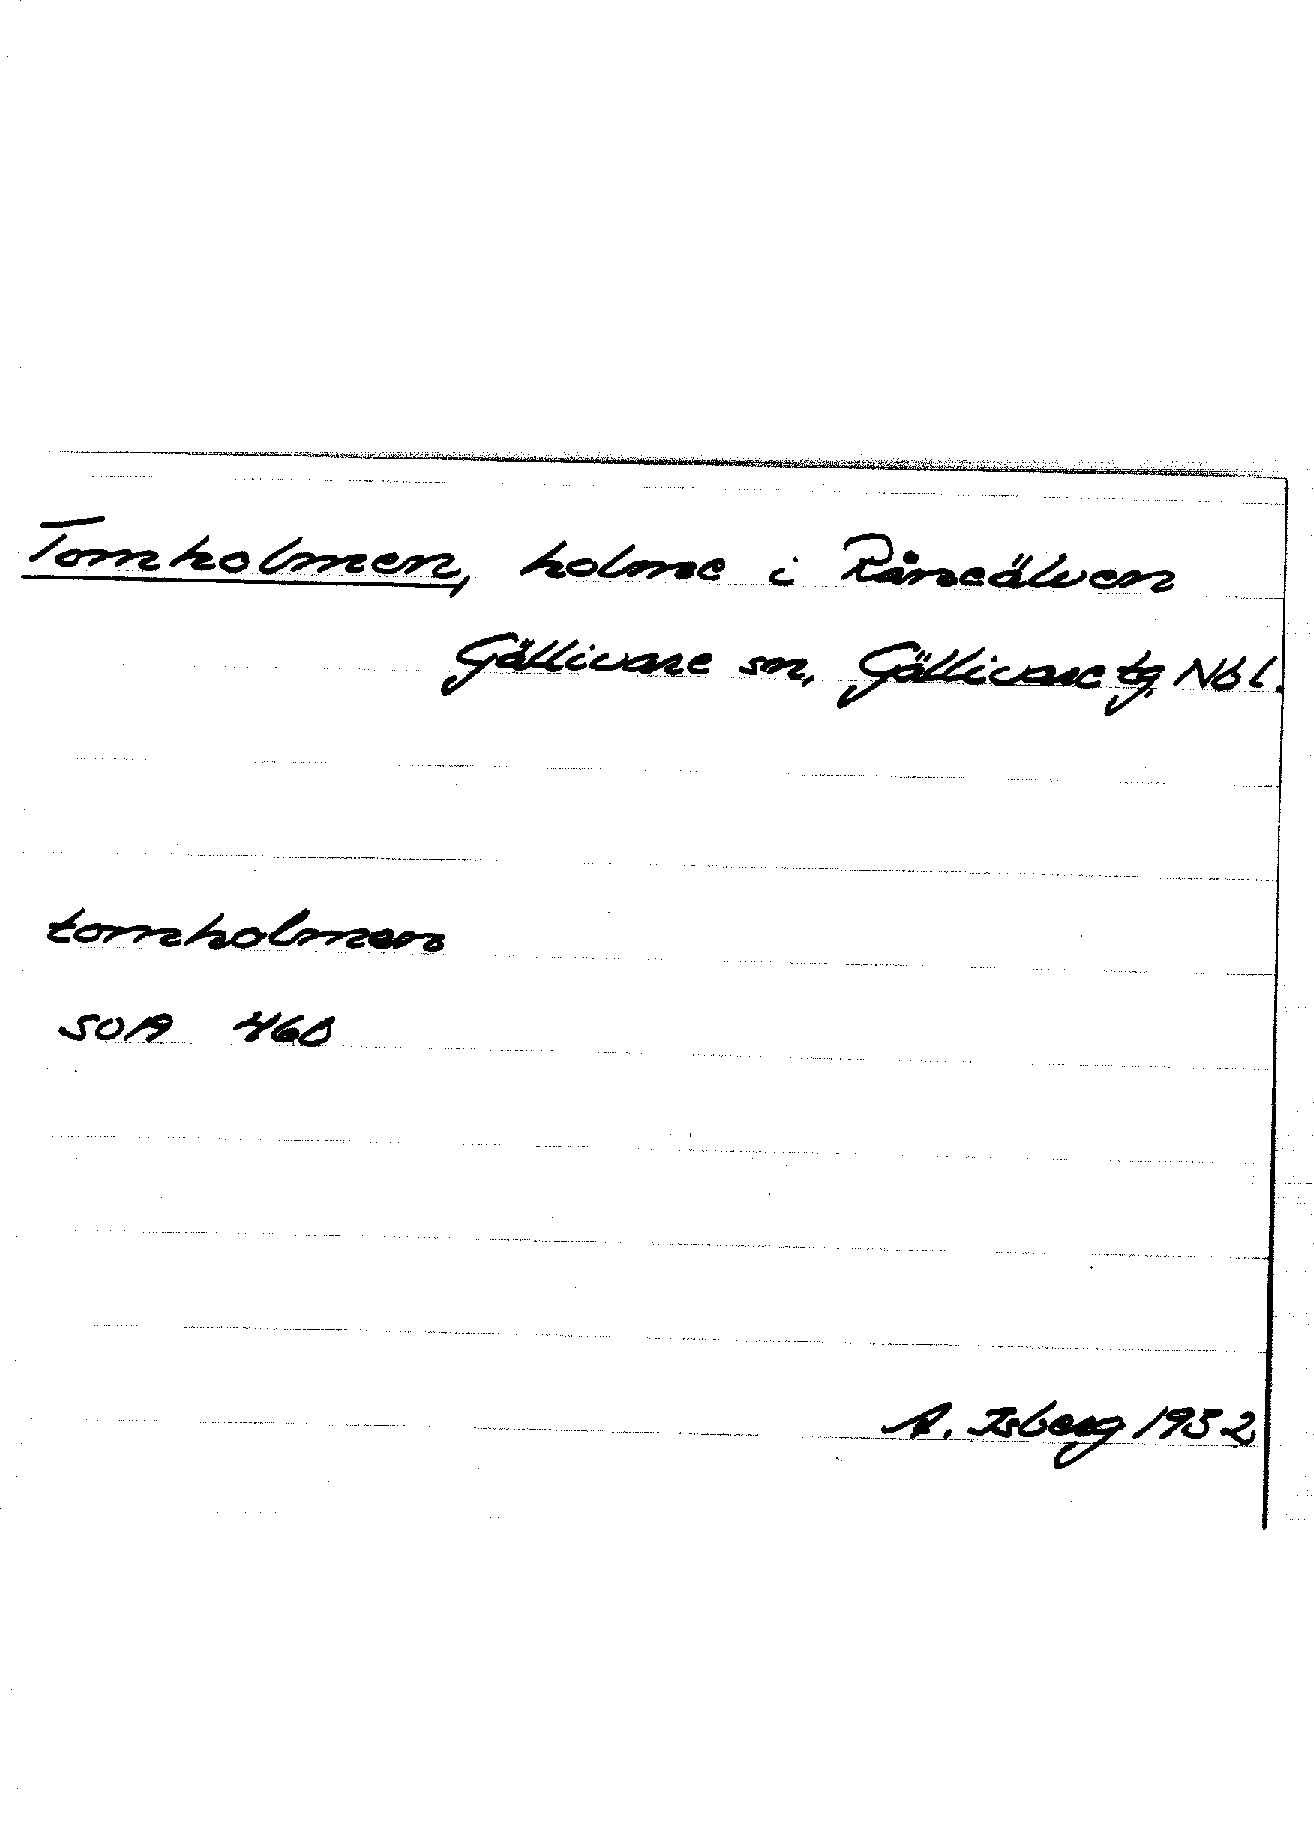 Tomholmen, holme i Råneälven
Gällivare sn, Gällivare tg Nbl.
tomholmen
SOA 460
A. Isberg 1952